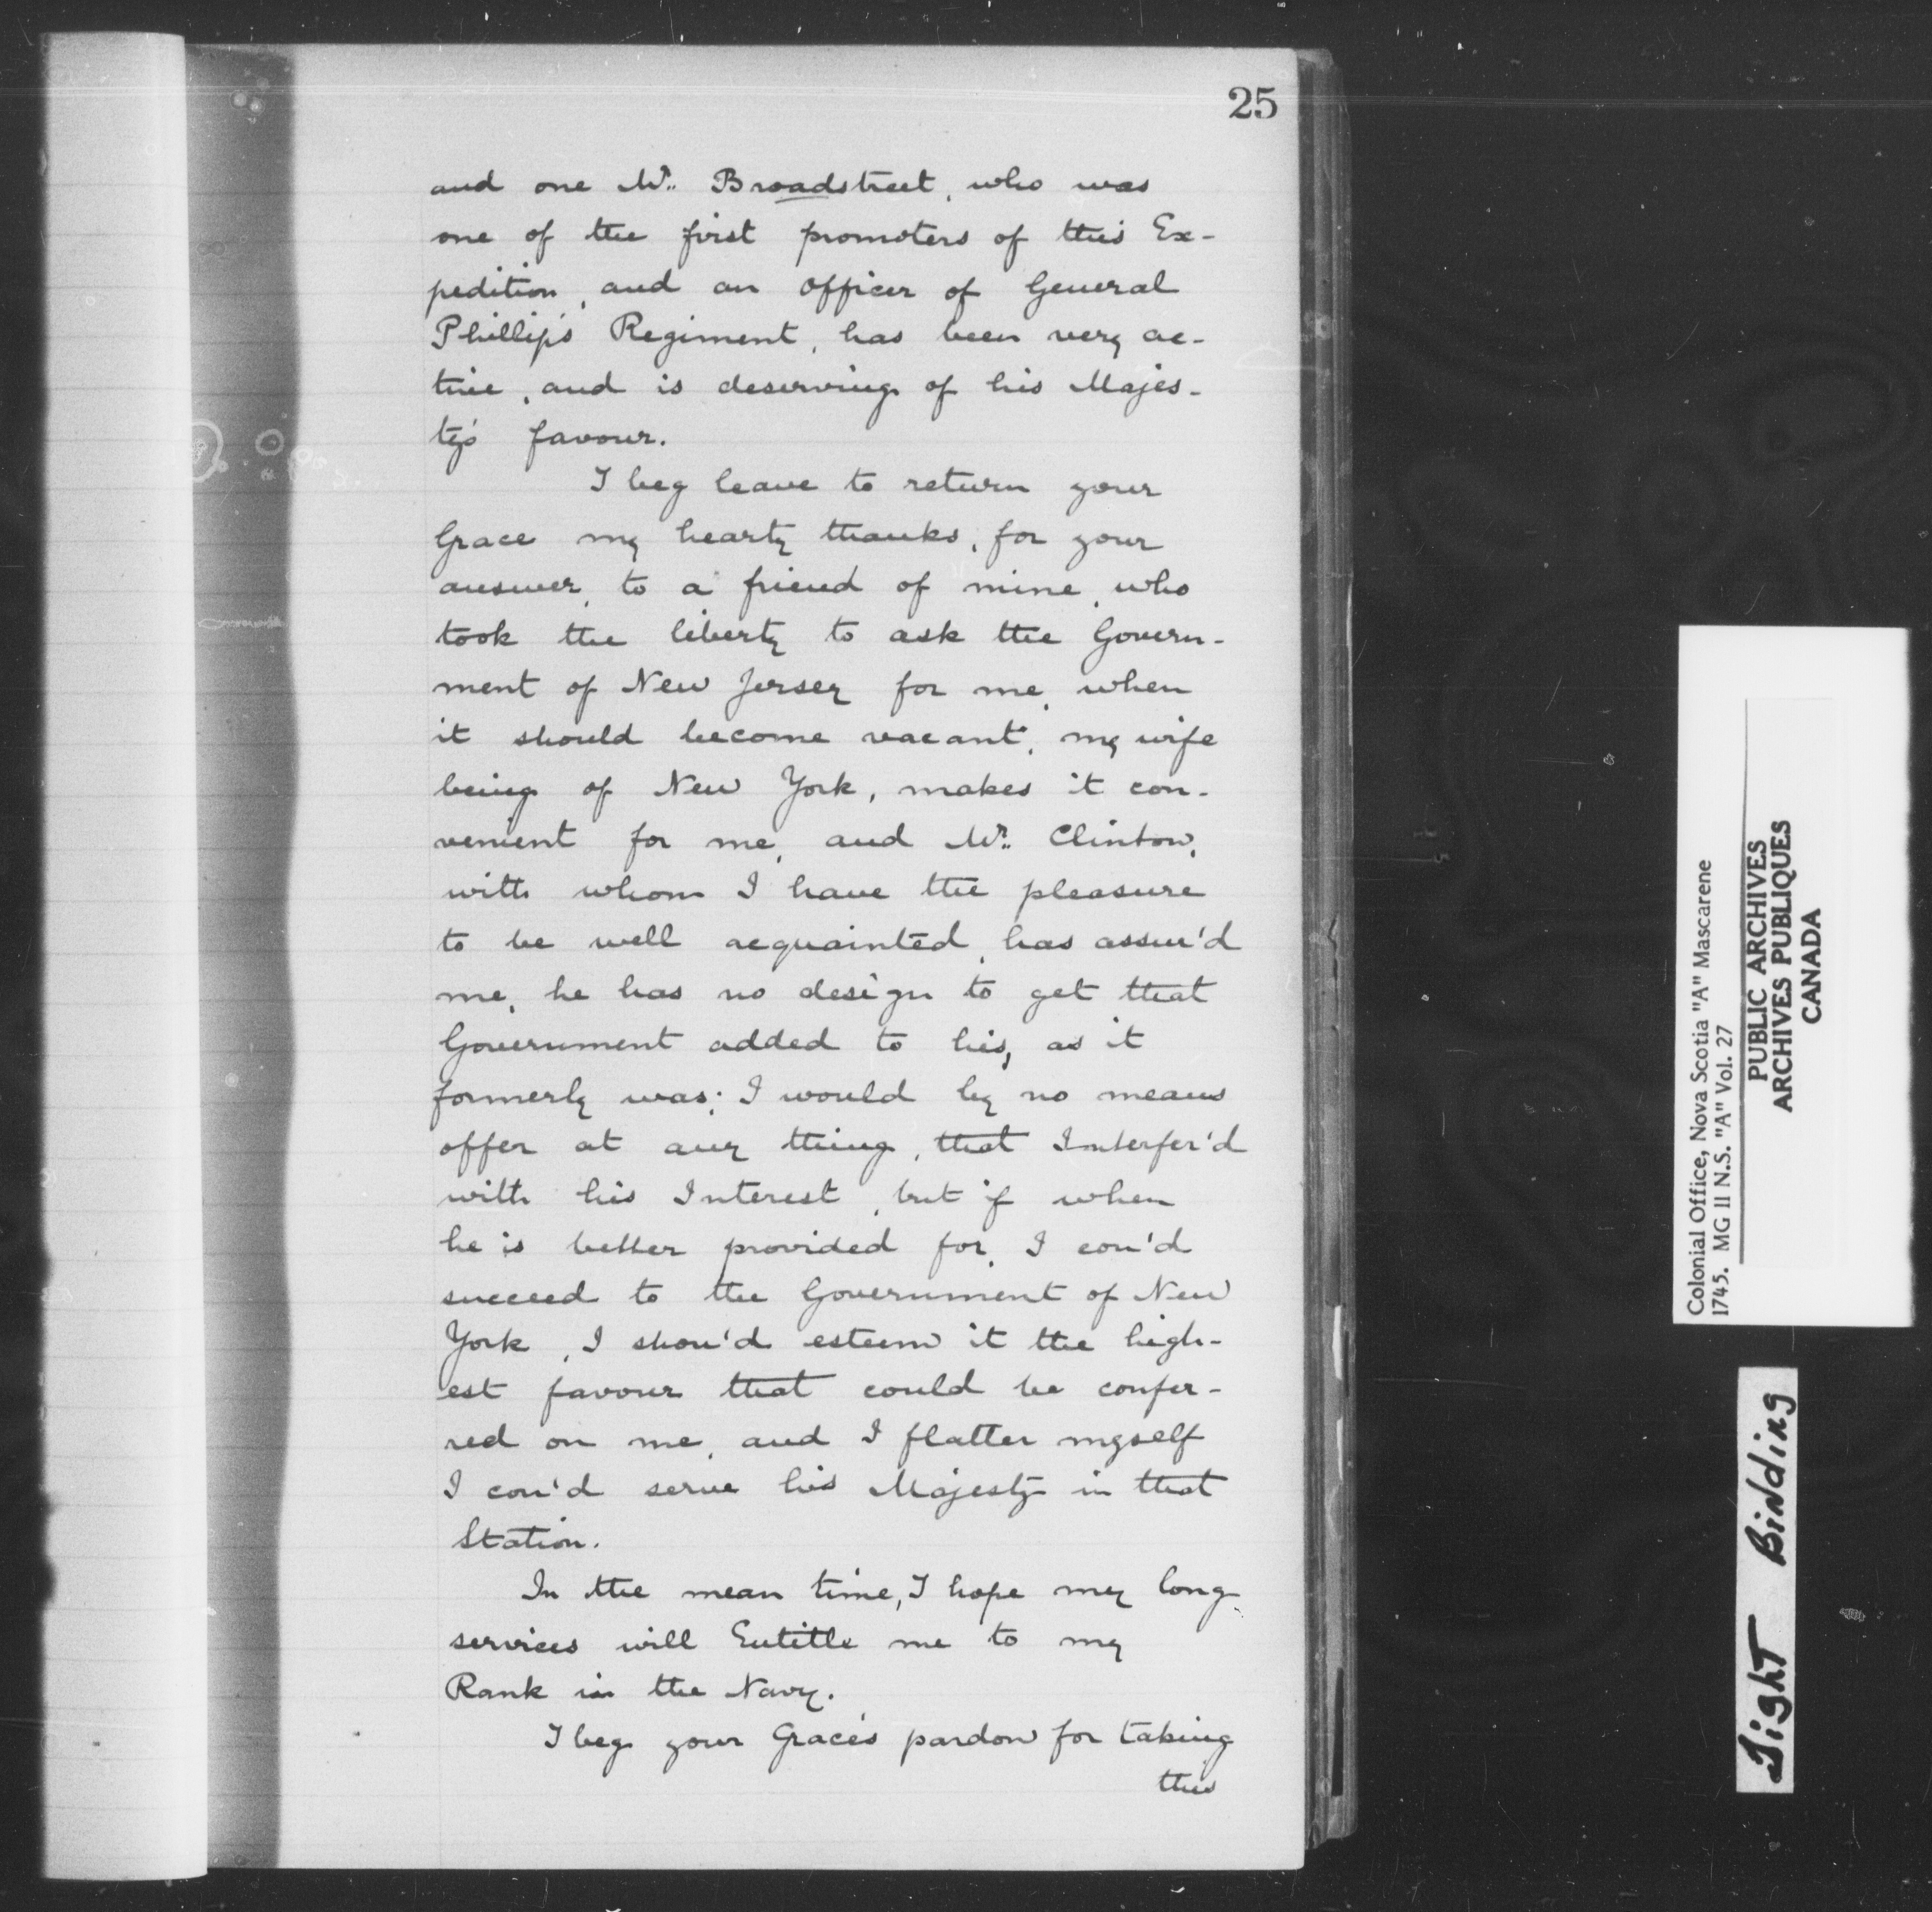 25
and one Mr. Broadstreet, who was
one of the first promoters of this Ex-
pedition, and an officer of General
Phillip's Regiment, has been very ac-
tive, and is deserving of his Majes-
ty's favour.
I beg leave to return your
Grace my hearty thanks, for your
answer, to a friend of mine, who
took the liberty to ask the Govern-
ment of New Jersey for me, when
it should become vacant, my wife
being of New York, makes it con-
venient for me, and Mr. Clinton,
with whom I have the pleasure
to be well acquainted, has assur'd
me, he has no design to get that
Government added to his, as it
formerly was; I would by no means
offer at any thing, that Interfer'd
with his Interest, but if when
he is better provided for, I cou'd
succeed to the Government of New
York, I shou'd esteem it the high-
est favour that could be confer-
red on me, and I flatter myself
I cou'd serve his Majesty in that
Station.
In the mean time, I hope my long
services will Entitle me to my
Rank in the Navy.
I beg your Grace's pardon for taking
this
Colonial Office, Nova Scotia "A" Mascarene
1745. MG II N.S. "A" Vol. 27
PUBLIC ARCHIVES
ARCHIVES PUBLIQUES
CANADA
Tight Binding